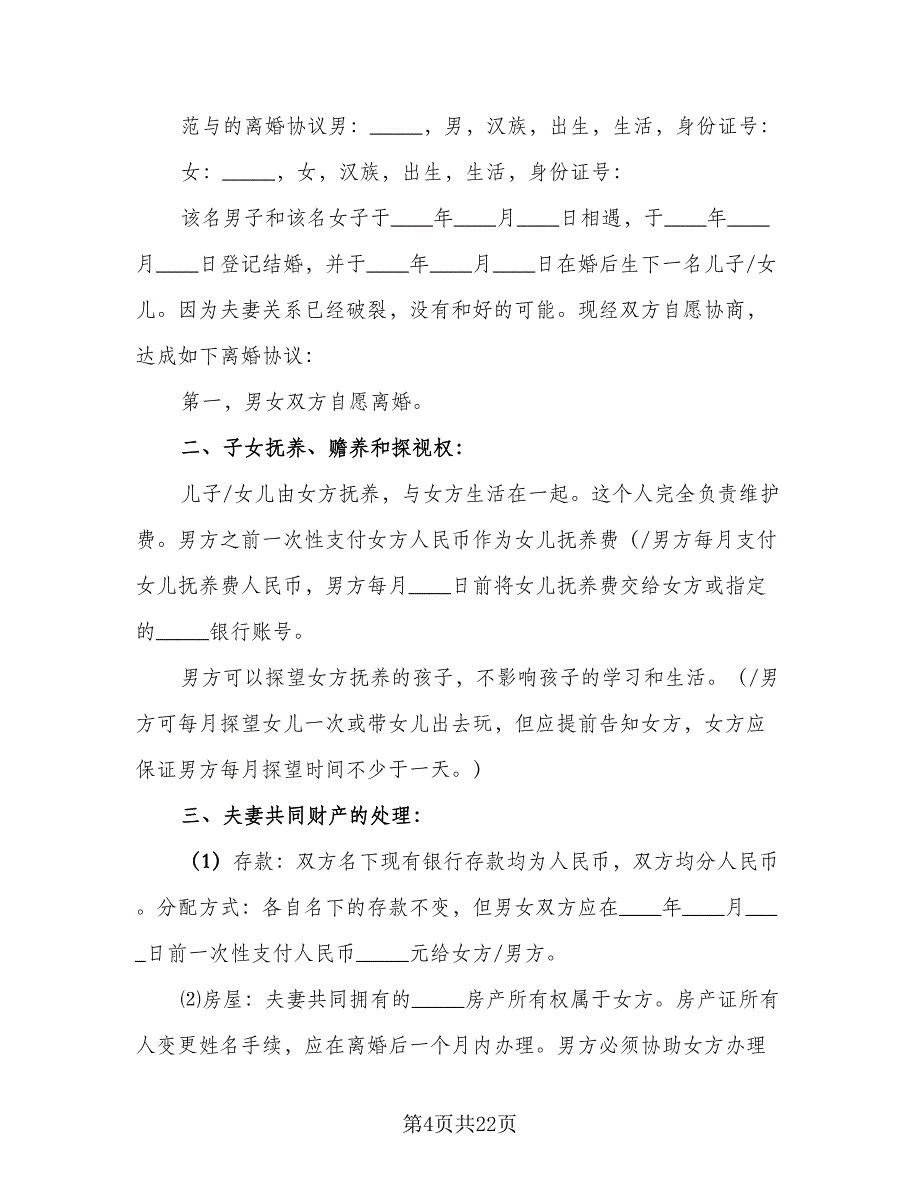 范与的离婚协议男：_____，男，汉族，出生，生活，身份证号：
女：_____，女，汉族，出生，生活，身份证号：
该名男子和该名女子于____年____月____日相遇，于____年____
月____日登记结婚，并于____年____月____日在婚后生下一名儿子/女
儿。因为夫妻关系已经破裂，没有和好的可能。现经双方自愿协商，
达成如下离婚协议：
第一，男女双方自愿离婚。
二、子女抚养、赡养和探视权：
儿子/女儿由女方抚养，与女方生活在一起。这个人完全负责维护
费。男方之前一次性支付女方人民币作为女儿抚养费（/男方每月支付
女儿抚养费人民币，男方每月____日前将女儿抚养费交给女方或指定
的_____银行账号。
男方可以探望女方抚养的孩子，不影响孩子的学习和生活。（/男
方可每月探望女儿一次或带女儿出去玩，但应提前告知女方，女方应
保证男方每月探望时间不少于一天。）
三、夫妻共同财产的处理：
（1）存款：双方名下现有银行存款均为人民币，双方均分人民币
。分配方式：各自名下的存款不变，但男女双方应在____年____月___
_日前一次性支付人民币_____元给女方/男方。
⑵房屋：夫妻共同拥有的_____房产所有权属于女方。房产证所有
人变更姓名手续，应在离婚后一个月内办理。男方必须协助女方办理
第4页共22页